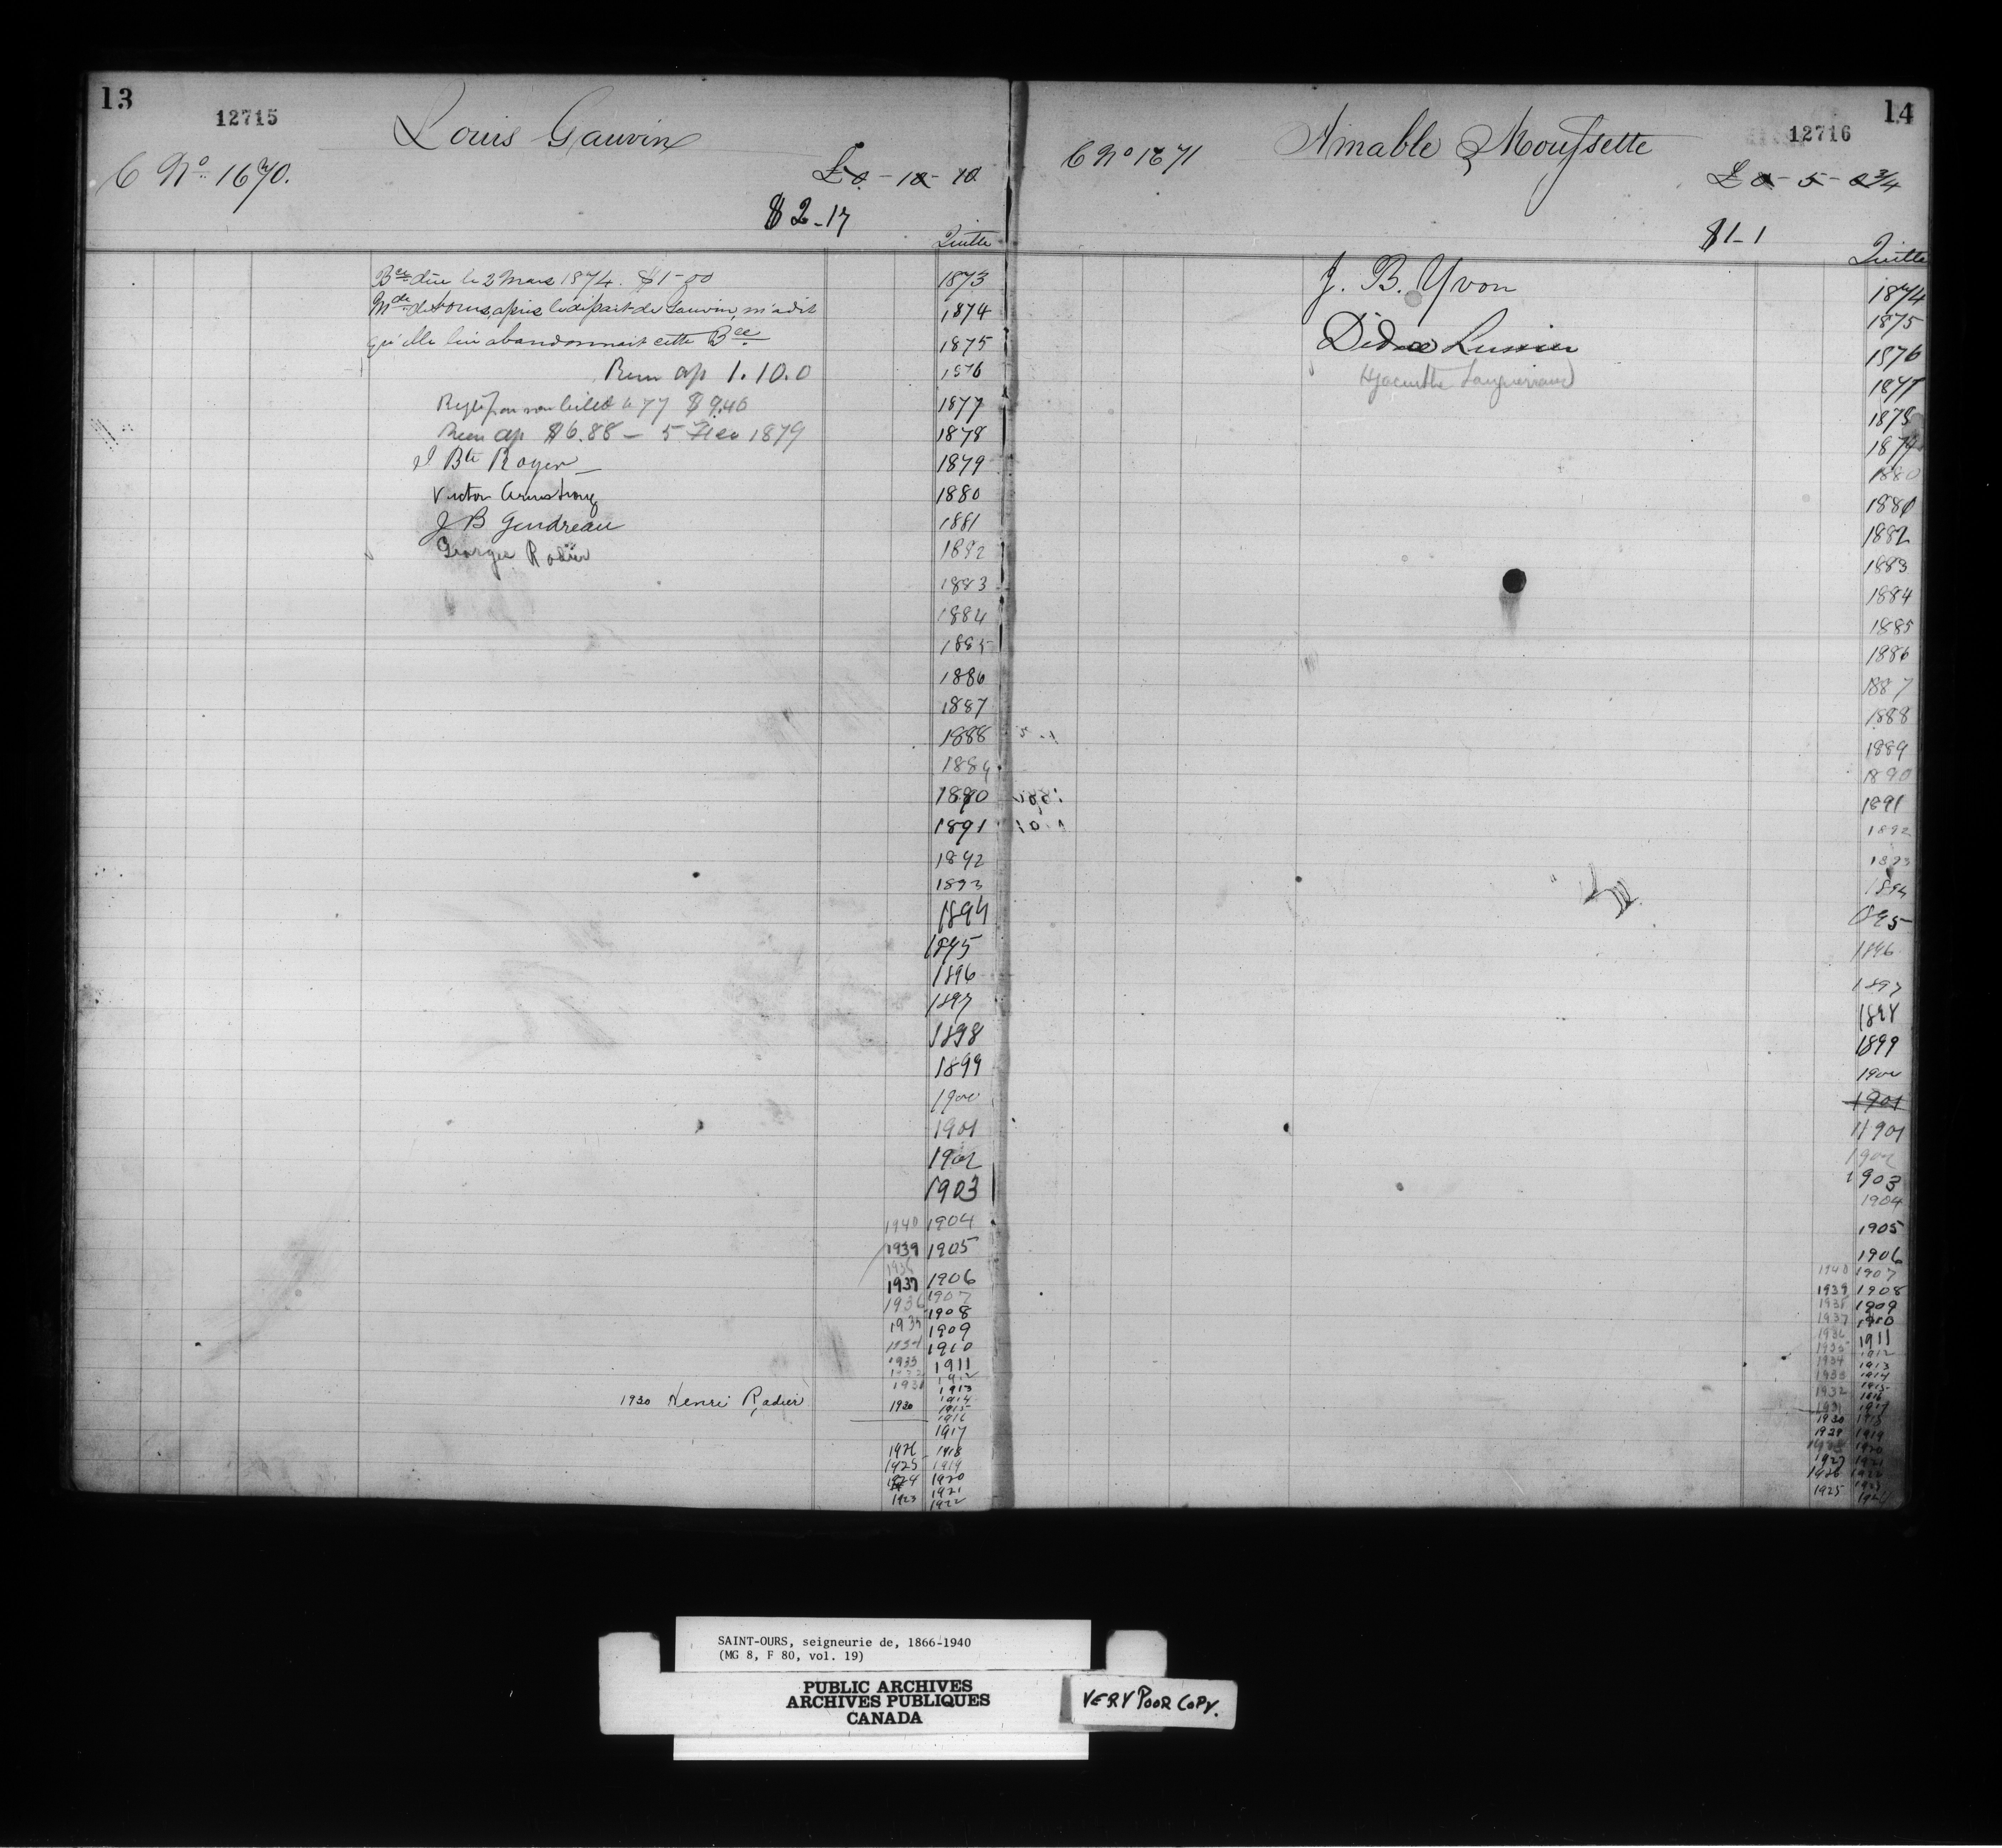 13
12715
Louis Gauvin
C No. 1670.
£0 - 10 - 10
$2-17
Quitte
Bce due le 2 Mars 1874. $1-00
Mde de St Ours, après le départ de Gauvin, m'a dit
qu'elle lui abandonnait cette Bce
Recu ap 1.10.0
Reglé par son billet à 77 $9.46
Recu ap $6.88 - 5 1879
J Bte Royer
Victor Armstrong
J B Gendreau
George Rodier
1873
1874
1875
1876
1877
1878
1879
1880
1881
1882
1883
1884
1885
1886
1887
1888
1889
1890
1891
1892
1893
1894
1895
1896
1897
1898
1899
1900
1901
1902
1903
1940 1904
1939 1905
1938
1937 1906
1936 1907
1908
1935 1909
1934 1910
1933 1911
1932 1912
1931 1913
1930 Henri Rodier
1930 1914
1915
1916
1917
1926 1918
1925 1919
1924 1920
1923 1921
1922
14
12716
Amable Moussette
C No 1671
£0 - 5 - 0 3/4
$1-1
Quitte
J. B. Yvon
Lussier
Hyacinthe
1874
1875
1876
1877
1878
1879
1880
1880
1882
1883
1884
1885
1886
1887
1888
1889
1890
1891
1892
1893
1894
1895
1896
1897
1898
1899
1900
1901
1901
1902
1903
1904
1905
1906
1940 1907
1939 1908
1938 1909
1937 1910
1936 1911
1935 1912
1934 1913
1933 1914
1932 1915
1916
1931 1917
1930 1918
1929 1919
1928 1920
1927 1921
1926 1922
1925 1923
1924
SAINT-OURS, seigneurie de, 1866-1940
(MG 8, F 80, vol. 19)
PUBLIC ARCHIVES
ARCHIVES PUBLIQUES
CANADA
VERY POOR COPY.